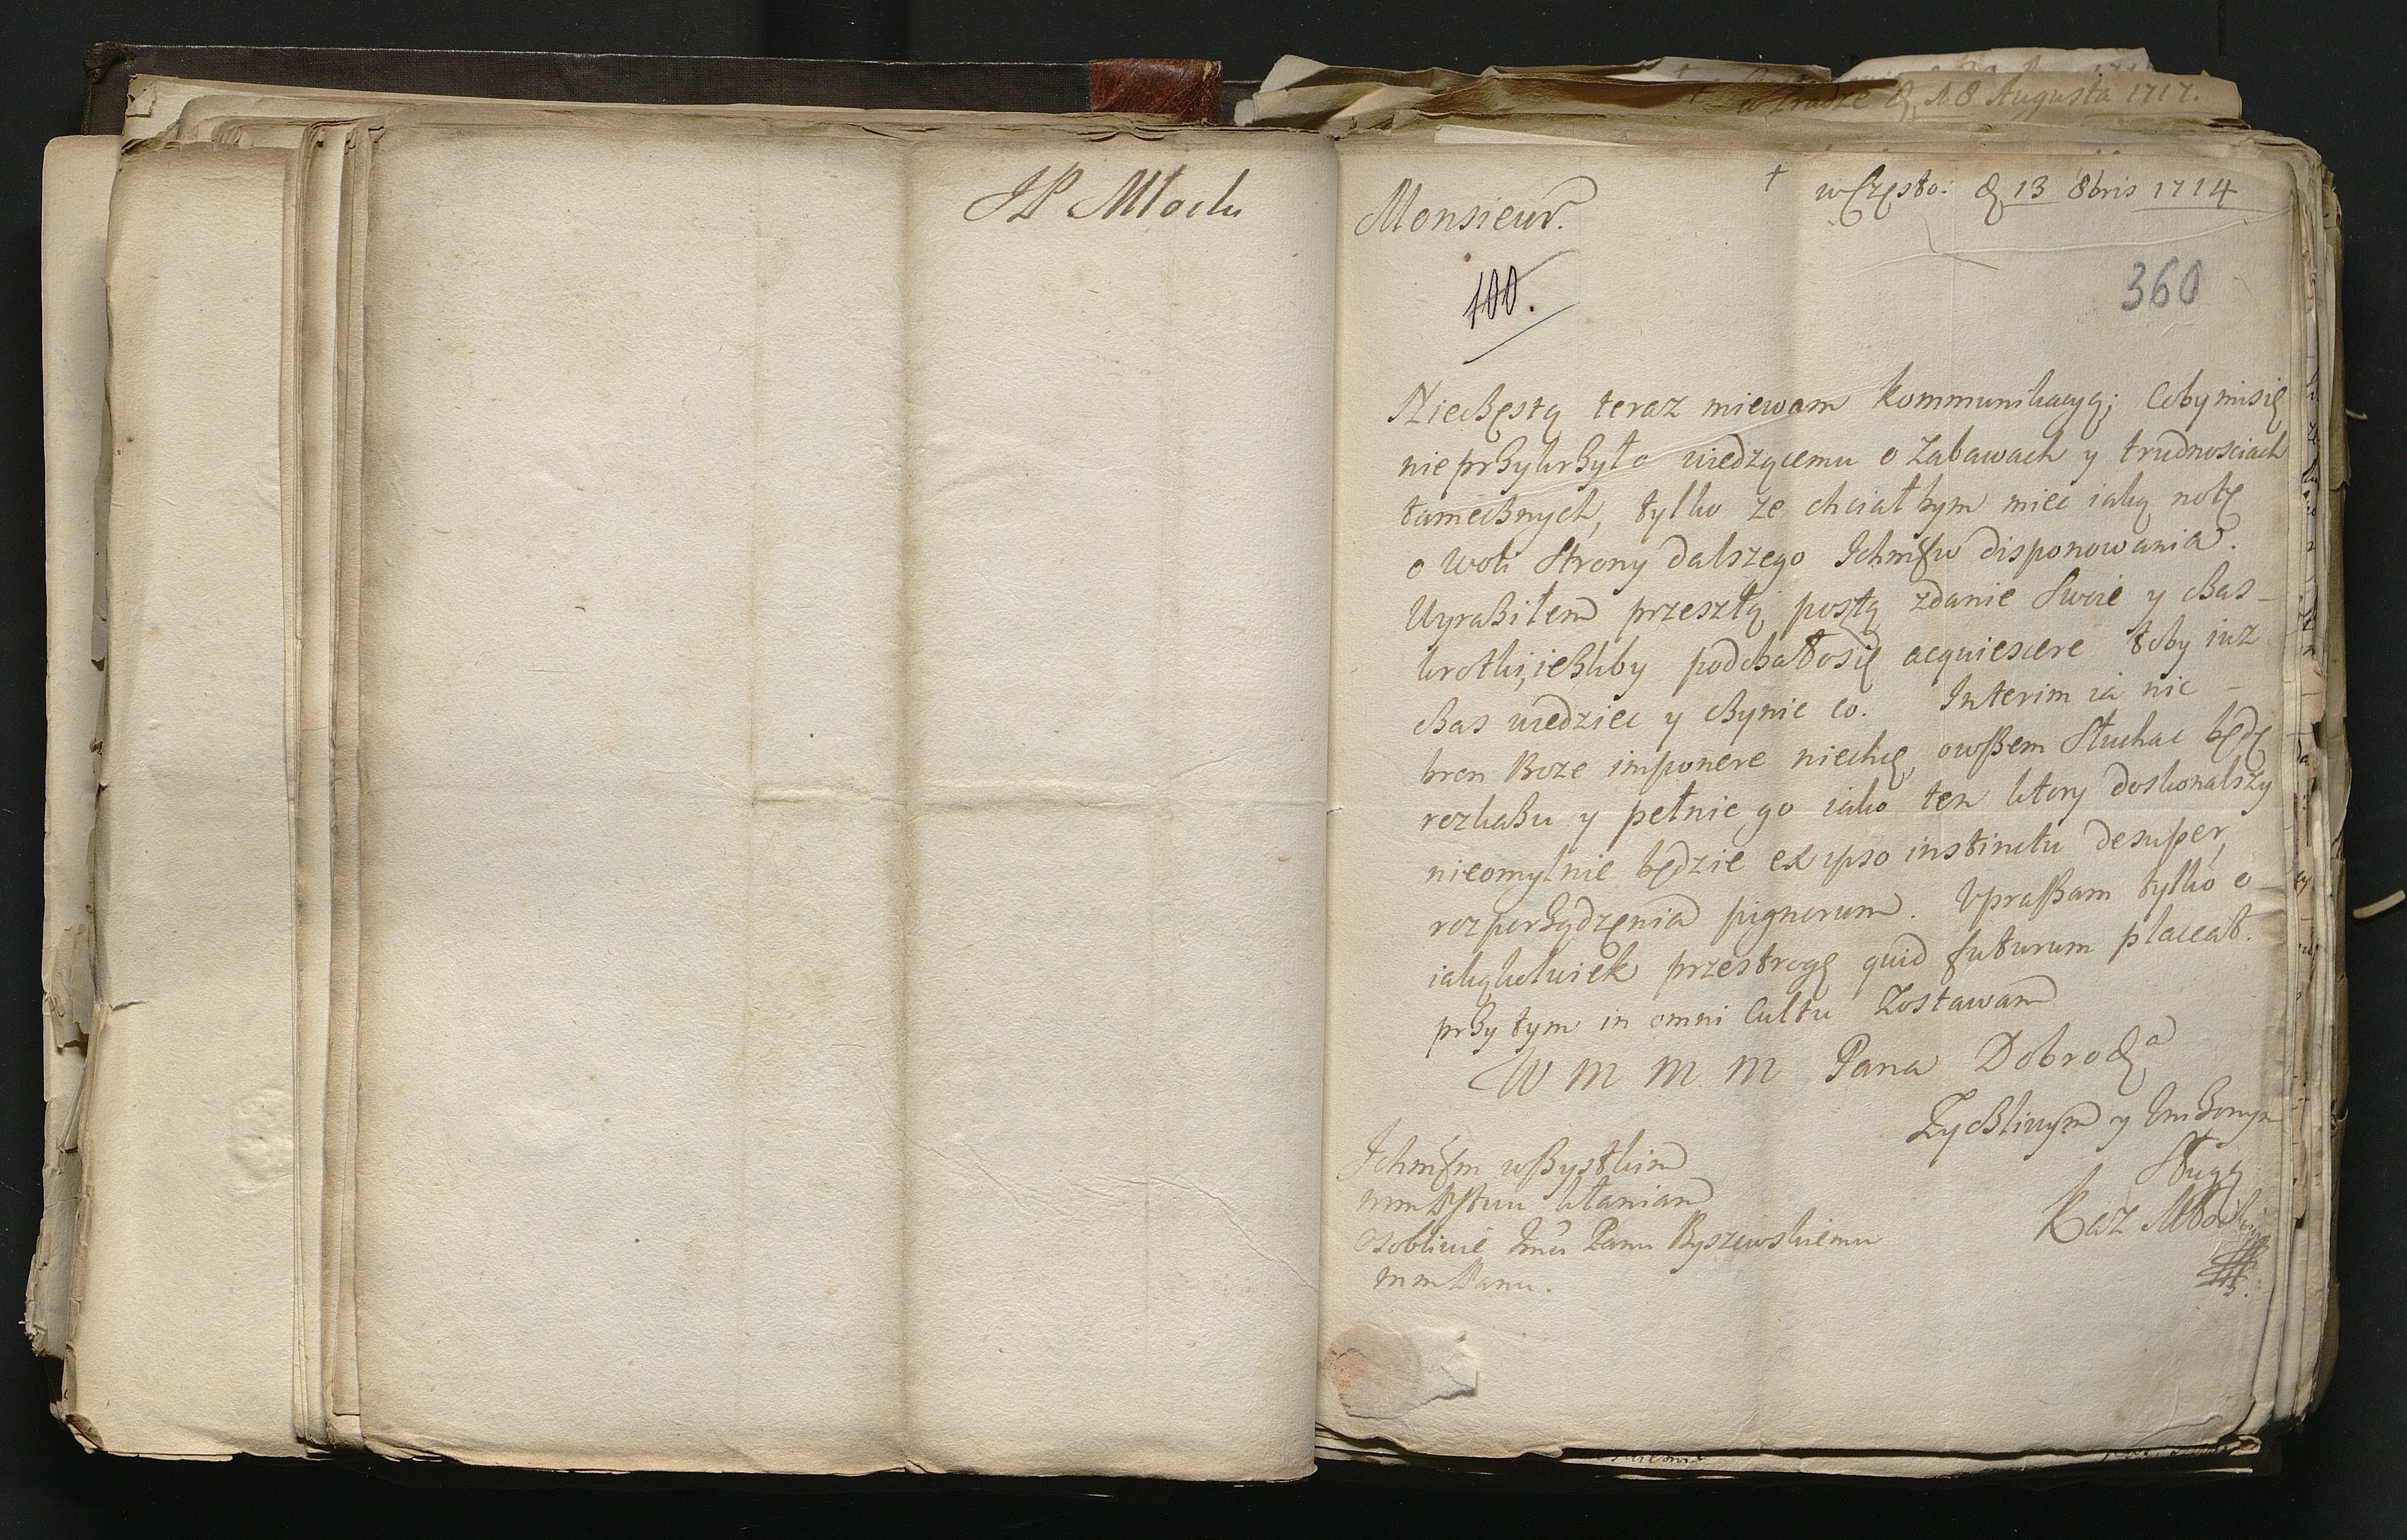 w Pradze d. 18 Augusta 1717.
JP Młocki
+ w Często: d 13 8bris 1714
Monsieur.
100.
360
Nieczęstą teraz miewam kommunikacyą; Coby misię
nie przykrzyło wiedzącemu o Zabawach y trudnosciach
tamecznych, tylko ze chciałbym miec iaką notę
o woli Strony dalszego Ichmsw disponowania.
Wyraziłem przeszłą posztą zdanie Swoie y czas
krotki, iezliby podobało się acquiescere toby iuz
czas wiedziec y czynic co. Interim ia nic
bron Boze imponere niechcę, owszem Słuchac będę
rozkazu y pełnic go iako ten ktory doskonalszy
nieomylnie będzie ex ipso instinctu desuper,
rozporządzenia pignorum. Vpraszam tylko o
iakąkolwiek przestrogę quid futurum placeat.
przy tym in omni Cultu Zostawam
W M M M Pana Dobrodza
Zyczliwym y Unizonym
Sługą
Kaz Młocki
Ichmsm wszystkim
mm Pstwu kłaniam
Osobliwie Jmci Panu Byszewskiemu
mm Panu.